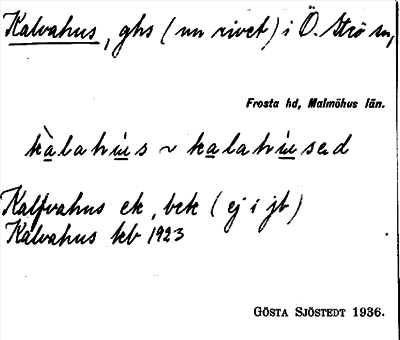 Kalvahus, ghs (nu rivet) i Ö. Strö sn,
Frosta hd, Malmöhus län.
kalahus ~ kalahused
Kalfvahus ek, bek (ej i jb)
Kalvahus kb 1923
GÖSTA SJÖSTEDT 1936.